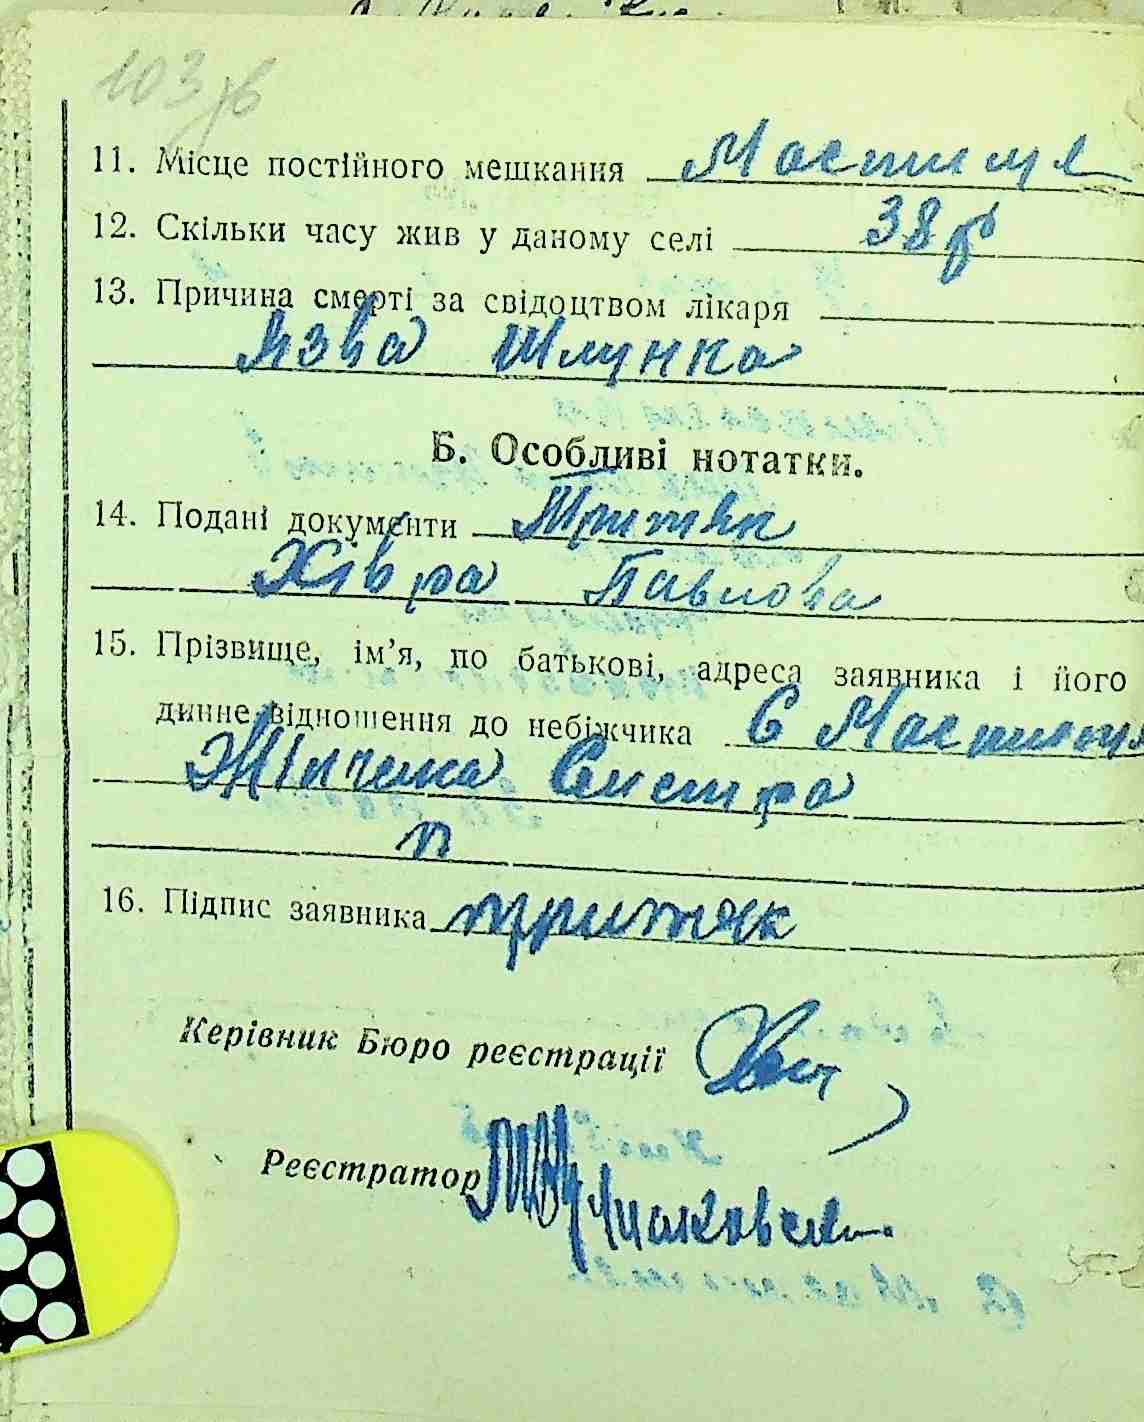 103 зв
11. Місце постійного мешкання Мастище
12. Скільки часу жив у даному селі 38 р
13. Причина смерті за свідоцтвом лікаря
Язва Шлунка
Б. Особливі нотатки.
14. Подані документи Притяк
Хівра Павлова
15. Прізвище, ім’я, по батькові, адреса заявника і його
динне відношення до небіжчика С Мастище
Жіпчека Систра
п
16. Підпис заявника притяк
Керівник Бюро реєстрації
Реєстратор